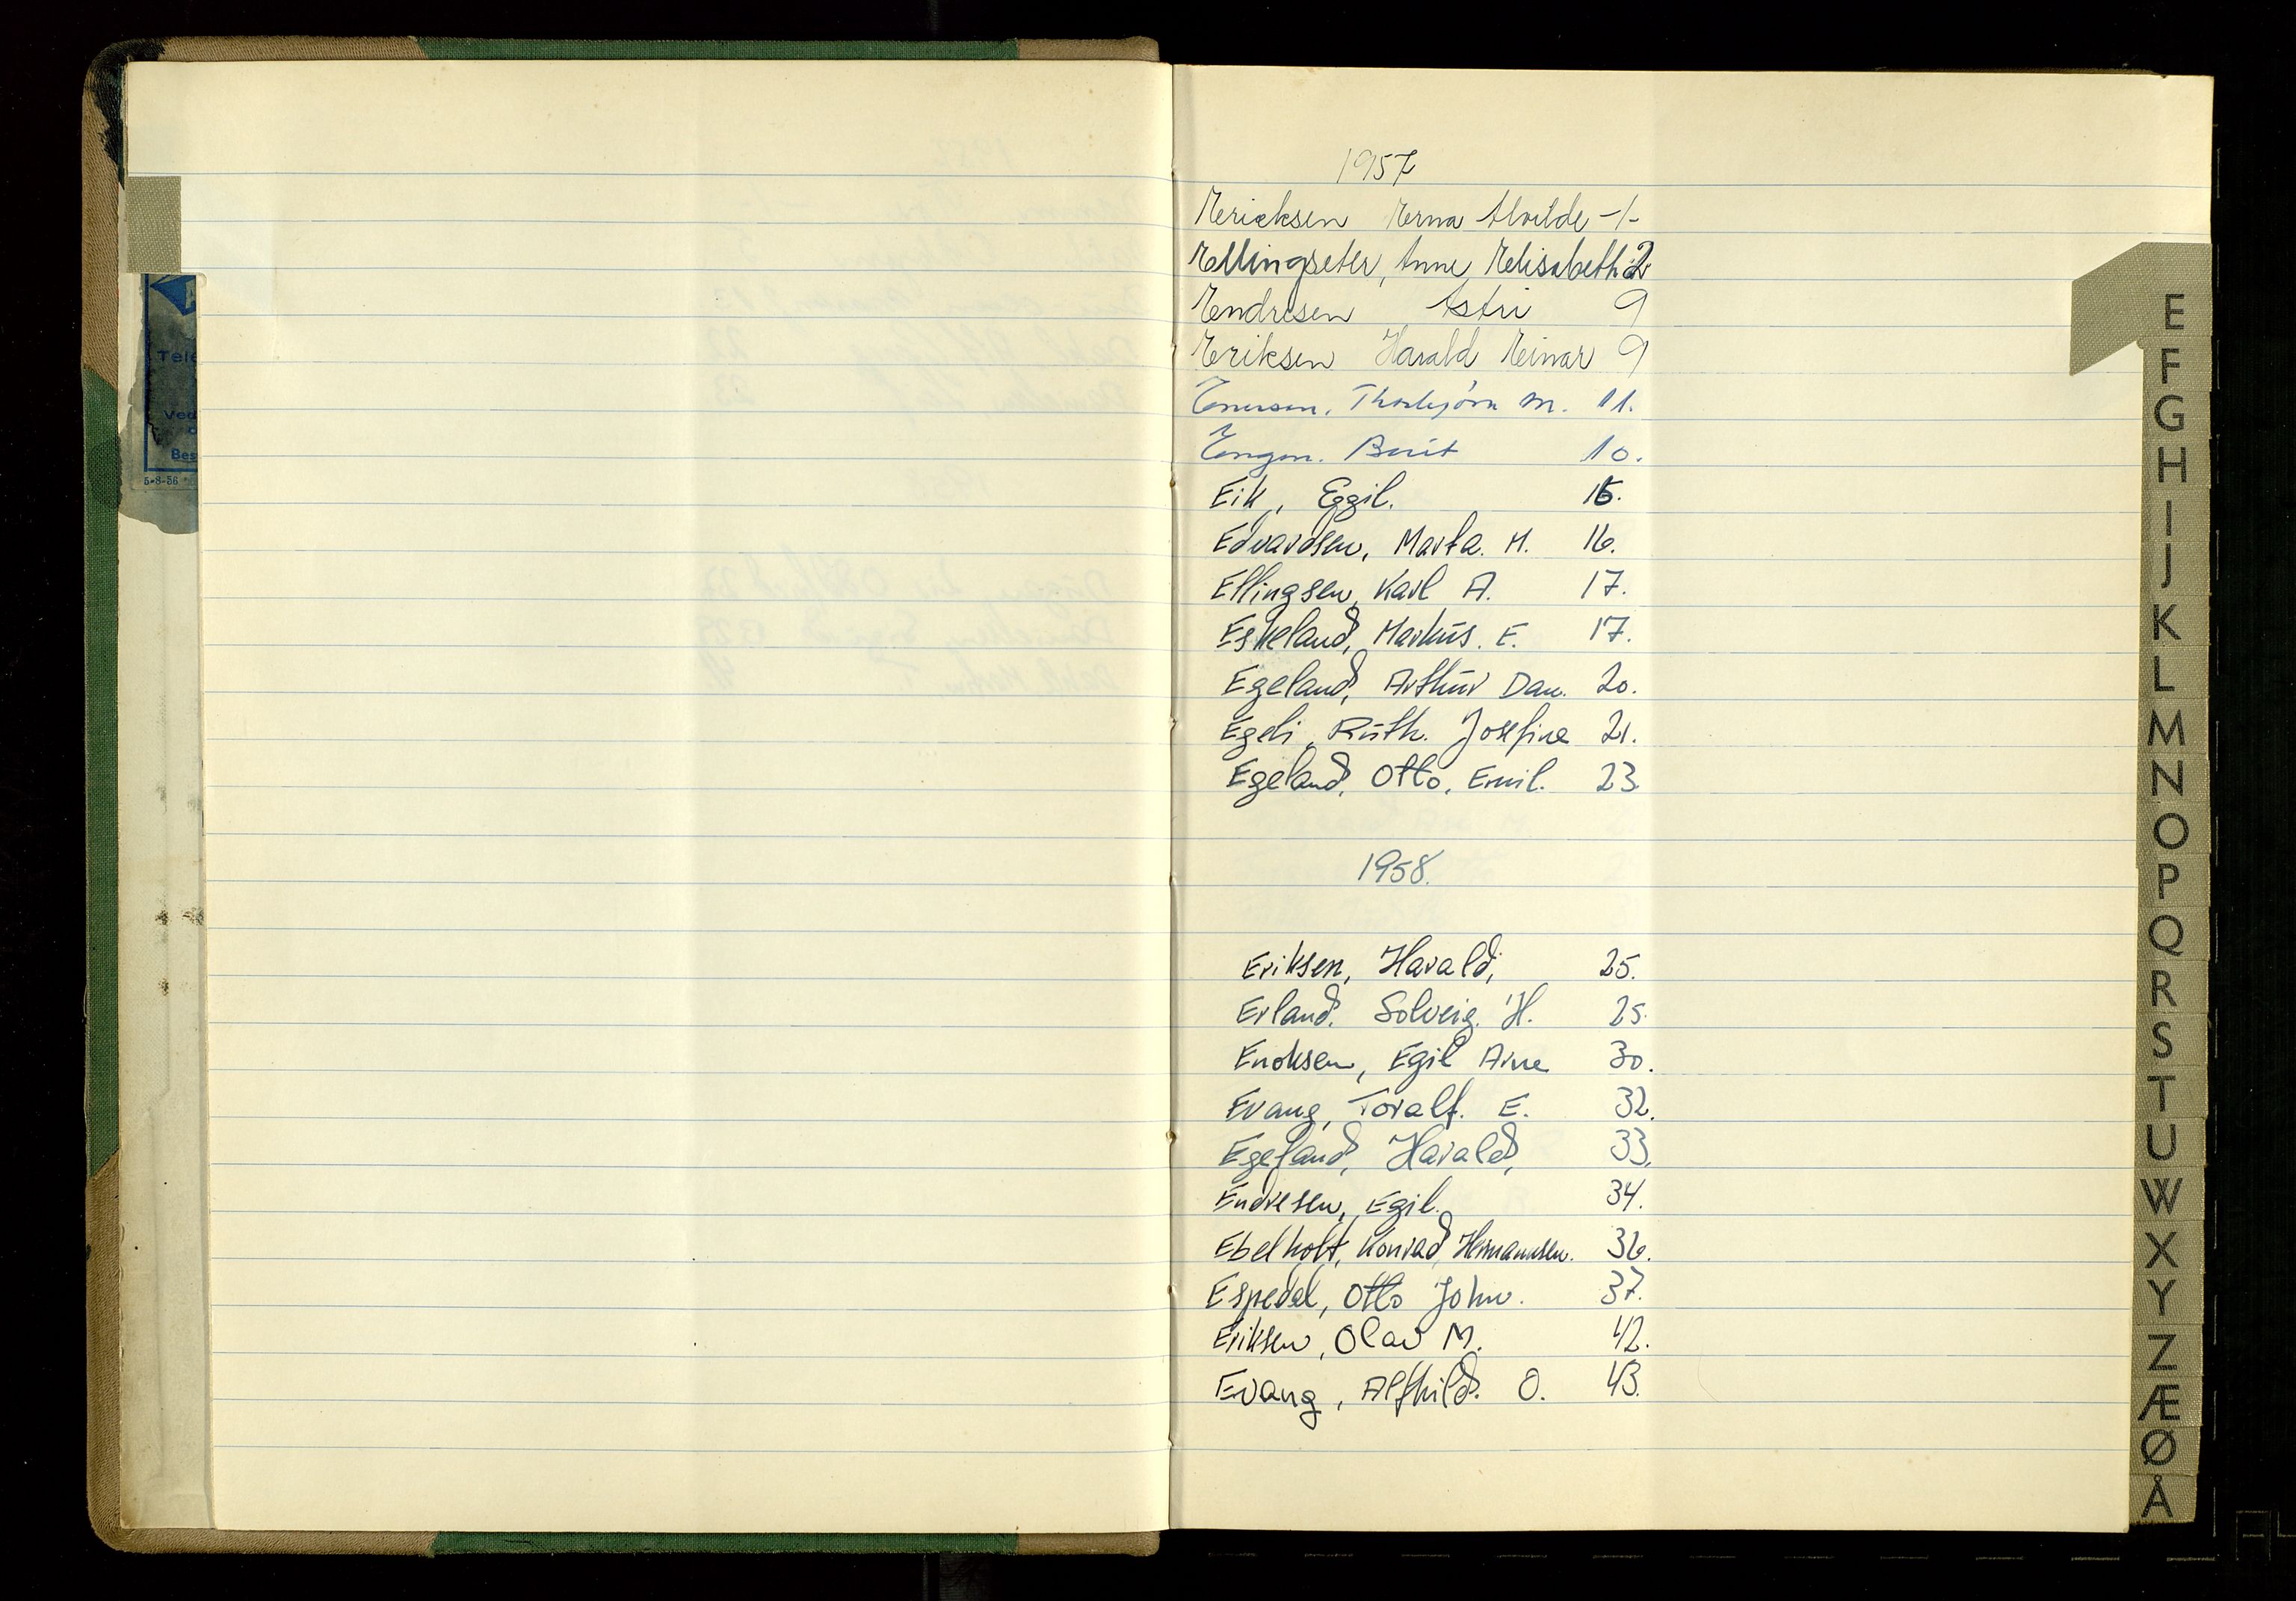 Tele
Ved
Bes
5-8-56
1957
Ericksen Erna Alvilde -1-
Ellingseter, Anne Elisabeth 2
Endresen Astri 9
Eriksen Harald Einar 9
Thorbjørn M. 11.
Berit 10.
Eik, Eggil. 15.
Edvardsen, Marta. M. 16.
Ellingsen, Karl A. 17.
Eskeland, Markus. E. 17.
Egeland, Arthur Dan. 20.
Egeli, Ruth. Josefine 21.
Egeland, Otto, Emil. 23
1958.
Eriksen, Harald, 25.
Erland. Solveig. H. 25.
Enoksen, Egil Arne 30.
Evang, Toralf. E. 32.
Egeland, Harald, 33.
Endresen, Egil. 34.
Ebelholt, Konrad Hermannsen. 36.
Espedal, Otto John. 37.
Eriksen, Olav M. 42.
Evang, Alfhild. O. 43.
E
F
G
H
I
J
K
L
M
N
O
P
Q
R
S
T
U
W
X
Y
Z
Æ
Ø
Å